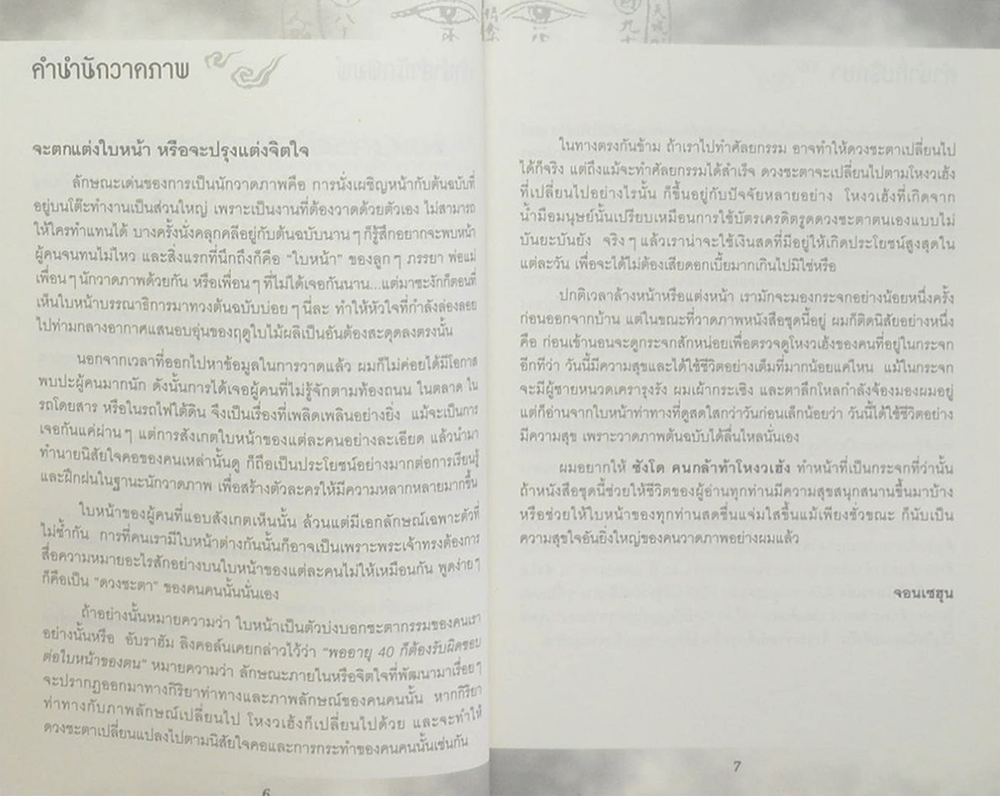 คำนำนักวาดภาพ
จะตกแต่งใบหน้า หรือจะปรุงแต่งจิตใจ
ลักษณะเด่นของการเป็นนักวาดภาพคือ การนั่งเผชิญหน้ากับต้นฉบับที่
อยู่บนโต๊ะทำงานเป็นส่วนใหญ่ เพราะเป็นงานที่ต้องวาดด้วยตัวเอง ไม่สามารถ
ให้ใครทำแทนได้ บางครั้งนั่งคลุกคลีอยู่กับต้นฉบับนานๆ ก็รู้สึกอยากจะพบหน้า
ผู้คนจนทนไม่ไหว และสิ่งแรกที่นึกถึงก็คือ “ใบหน้า” ของลูกๆ ภรรยา พ่อแม่
เพื่อนๆ นักวาดภาพด้วยกัน หรือเพื่อนๆ ที่ไม่ได้เจอกันนาน...แต่มาชะงักก็ตอนที่
เห็นใบหน้าบรรณาธิการมาทวงต้นฉบับบ่อยๆ นี่ละ ทำให้หัวใจที่กำลังล่องลอย
ไปท่ามกลางอากาศแสนอบอุ่นของฤดูใบไม้ผลิเป็นอันต้องสะดุดลงตรงนั้น
นอกจากเวลาที่ออกไปหาข้อมูลในการวาดแล้ว ผมก็ไม่ค่อยได้มีโอกาส
พบปะผู้คนมากนัก ดังนั้นการได้เจอผู้คนที่ไม่รู้จักตามท้องถนน ในตลาด ใน
รถโดยสาร หรือในรถไฟใต้ดิน จึงเป็นเรื่องที่เพลิดเพลินอย่างยิ่ง แม้จะเป็นการ
เจอกันแค่ผ่านๆ แต่การสังเกตใบหน้าของแต่ละคนอย่างละเอียด แล้วนำมา
ทำนายนิสัยใจคอของคนเหล่านั้นดู ก็ถือเป็นประโยชน์อย่างมากต่อการเรียนรู้
และฝึกฝนในฐานะนักวาดภาพ เพื่อสร้างตัวละครให้มีความหลากหลายมากขึ้น
ใบหน้าของผู้คนที่แอบสังเกตเห็นนั้น ล้วนแต่มีเอกลักษณ์เฉพาะตัวที่
ไม่ซ้ำกัน การที่คนเรามีใบหน้าต่างกันนั้นก็อาจเป็นเพราะพระเจ้าทรงต้องการ
สื่อความหมายอะไรสักอย่างบนใบหน้าของแต่ละคนไม่ให้เหมือนกัน พูดง่ายๆ
ก็คือเป็น “ดวงชะตา” ของคนคนนั้นนั่นเอง
ถ้าอย่างนั้นหมายความว่า ใบหน้าเป็นตัวบ่งบอกชะตากรรมของคนเรา
อย่างนั้นหรือ อับราฮัม ลิงคอล์นเคยกล่าวไว้ว่า “พออายุ 40 ก็ต้องรับผิดชอบ
ต่อใบหน้าของตน” หมายความว่า ลักษณะภายในหรือจิตใจที่พัฒนามาเรื่อยๆ
จะปรากฏออกมาทางกิริยาท่าทางและภาพลักษณ์ของคนคนนั้น หากกิริยา
ท่าทางกับภาพลักษณ์เปลี่ยนไป โหงวเฮ้งก็เปลี่ยนไปด้วย และจะทำให้
ดวงชะตาเปลี่ยนแปลงไปตามนิสัยใจคอและการกระทำของคนคนนั้นเช่นกัน
6
ในทางตรงกันข้าม ถ้าเราไปทำศัลยกรรม อาจทำให้ดวงชะตาเปลี่ยนไป
ได้ก็จริง แต่ถึงแม้จะทำศัลยกรรมได้สำเร็จ ดวงชะตาจะเปลี่ยนไปตามโหงวเฮ้ง
ที่เปลี่ยนไปอย่างไรนั้น ก็ขึ้นอยู่กับปัจจัยหลายอย่าง โหงวเฮ้งที่เกิดจาก
น้ำมือมนุษย์นั้นเปรียบเหมือนการใช้บัตรเครดิตรูดดวงชะตาตนเองแบบไม่
บันยะบันยัง จริงๆ แล้วเราน่าจะใช้เงินสดที่มีอยู่ให้เกิดประโยชน์สูงสุดใน
แต่ละวัน เพื่อจะได้ไม่ต้องเสียดอกเบี้ยมากเกินไปมิใช่หรือ
ปกติเวลาล้างหน้าหรือแต่งหน้า เรามักจะมองกระจกอย่างน้อยหนึ่งครั้ง
ก่อนออกจากบ้าน แต่ในขณะที่วาดภาพหนังสือชุดนี้อยู่ ผมก็ติดนิสัยอย่างหนึ่ง
คือ ก่อนเข้านอนจะดูกระจกสักหน่อยเพื่อตรวจดูโหงวเฮ้งของคนที่อยู่ในกระจก
อีกทีว่า วันนี้มีความสุขและได้ใช้ชีวิตอย่างเต็มที่มากน้อยแค่ไหน แม้ในกระจก
จะมีผู้ชายหนวดเครารุงรัง ผมเผ้ากระเซิง และตาลึกโหลกำลังจ้องมองผมอยู่
แต่ก็อ่านจากใบหน้าท่าทางที่ดูสดใสกว่าวันก่อนเล็กน้อยว่า วันนี้ได้ใช้ชีวิตอย่าง
มีความสุข เพราะวาดภาพต้นฉบับได้ลื่นไหลนั่นเอง
ผมอยากให้ ซังโต คนกล้าท้าโหงวเฮ้ง ทำหน้าที่เป็นกระจกที่ว่านั้น
ถ้าหนังสือชุดนี้ช่วยให้ชีวิตของผู้อ่านทุกท่านมีความสุขสนุกสนานขึ้นมาบ้าง
หรือช่วยให้ใบหน้าของทุกท่านสดชื่นแจ่มใสขึ้นแม้เพียงชั่วขณะ ก็นับเป็น
ความสุขใจอันยิ่งใหญ่ของคนวาดภาพอย่างผมแล้ว
จอนเซฮุน
7